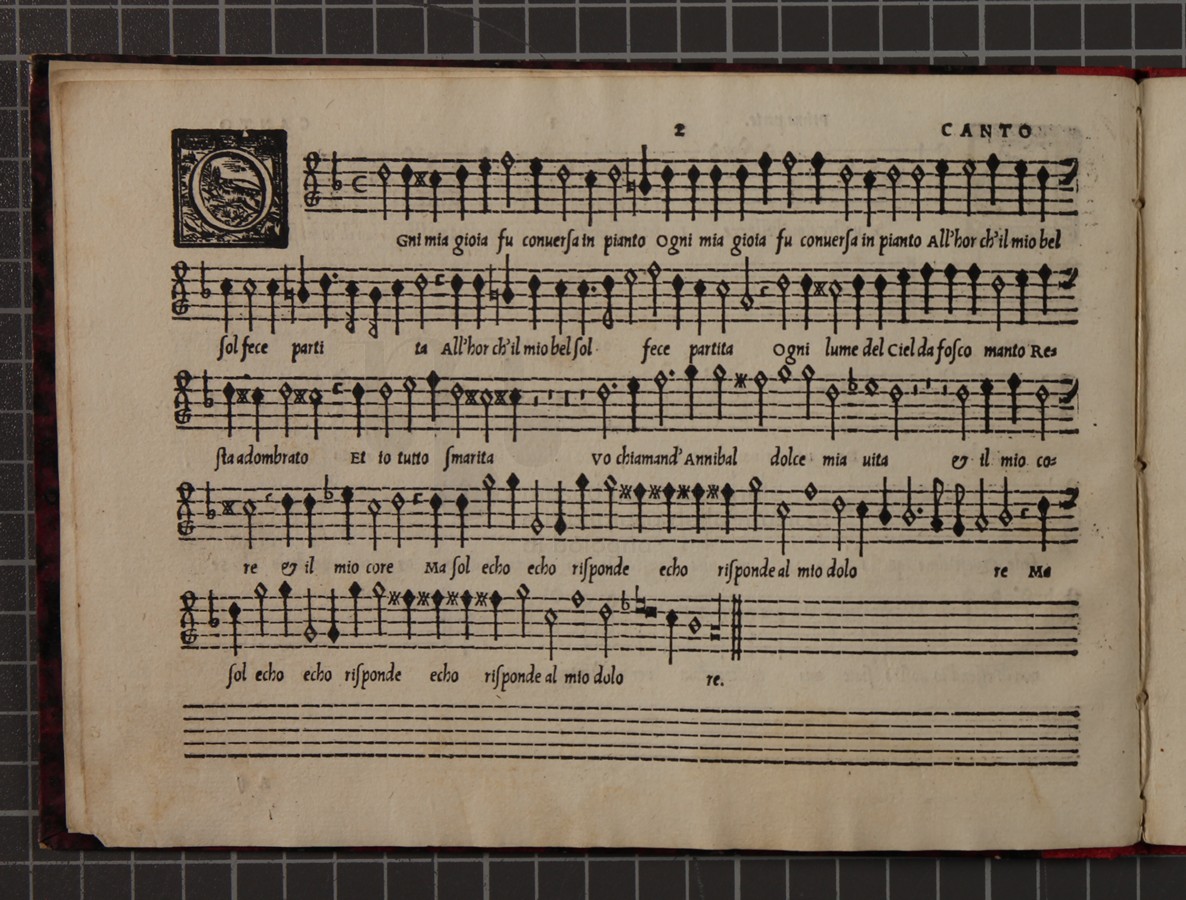 2 CANTO
OGni mia gioia fu conuerſa in pianto Ogni mia gioia fu conuerſa in pianto All'hor ch'il mio bel
ſol fece parti ta All'hor ch'il mio bel ſol fece partita Ogni lume del Ciel da foſco manto Re⸗
ſta adombrato Et io tutto ſmarita Vo chiamand' Annibal dolce mia uita & il mio co⸗
re & il mio core Ma ſol echo echo riſponde echo riſponde al mio dolo re Ma
ſol echo echo riſponde echo riſponde al mio dolo re.